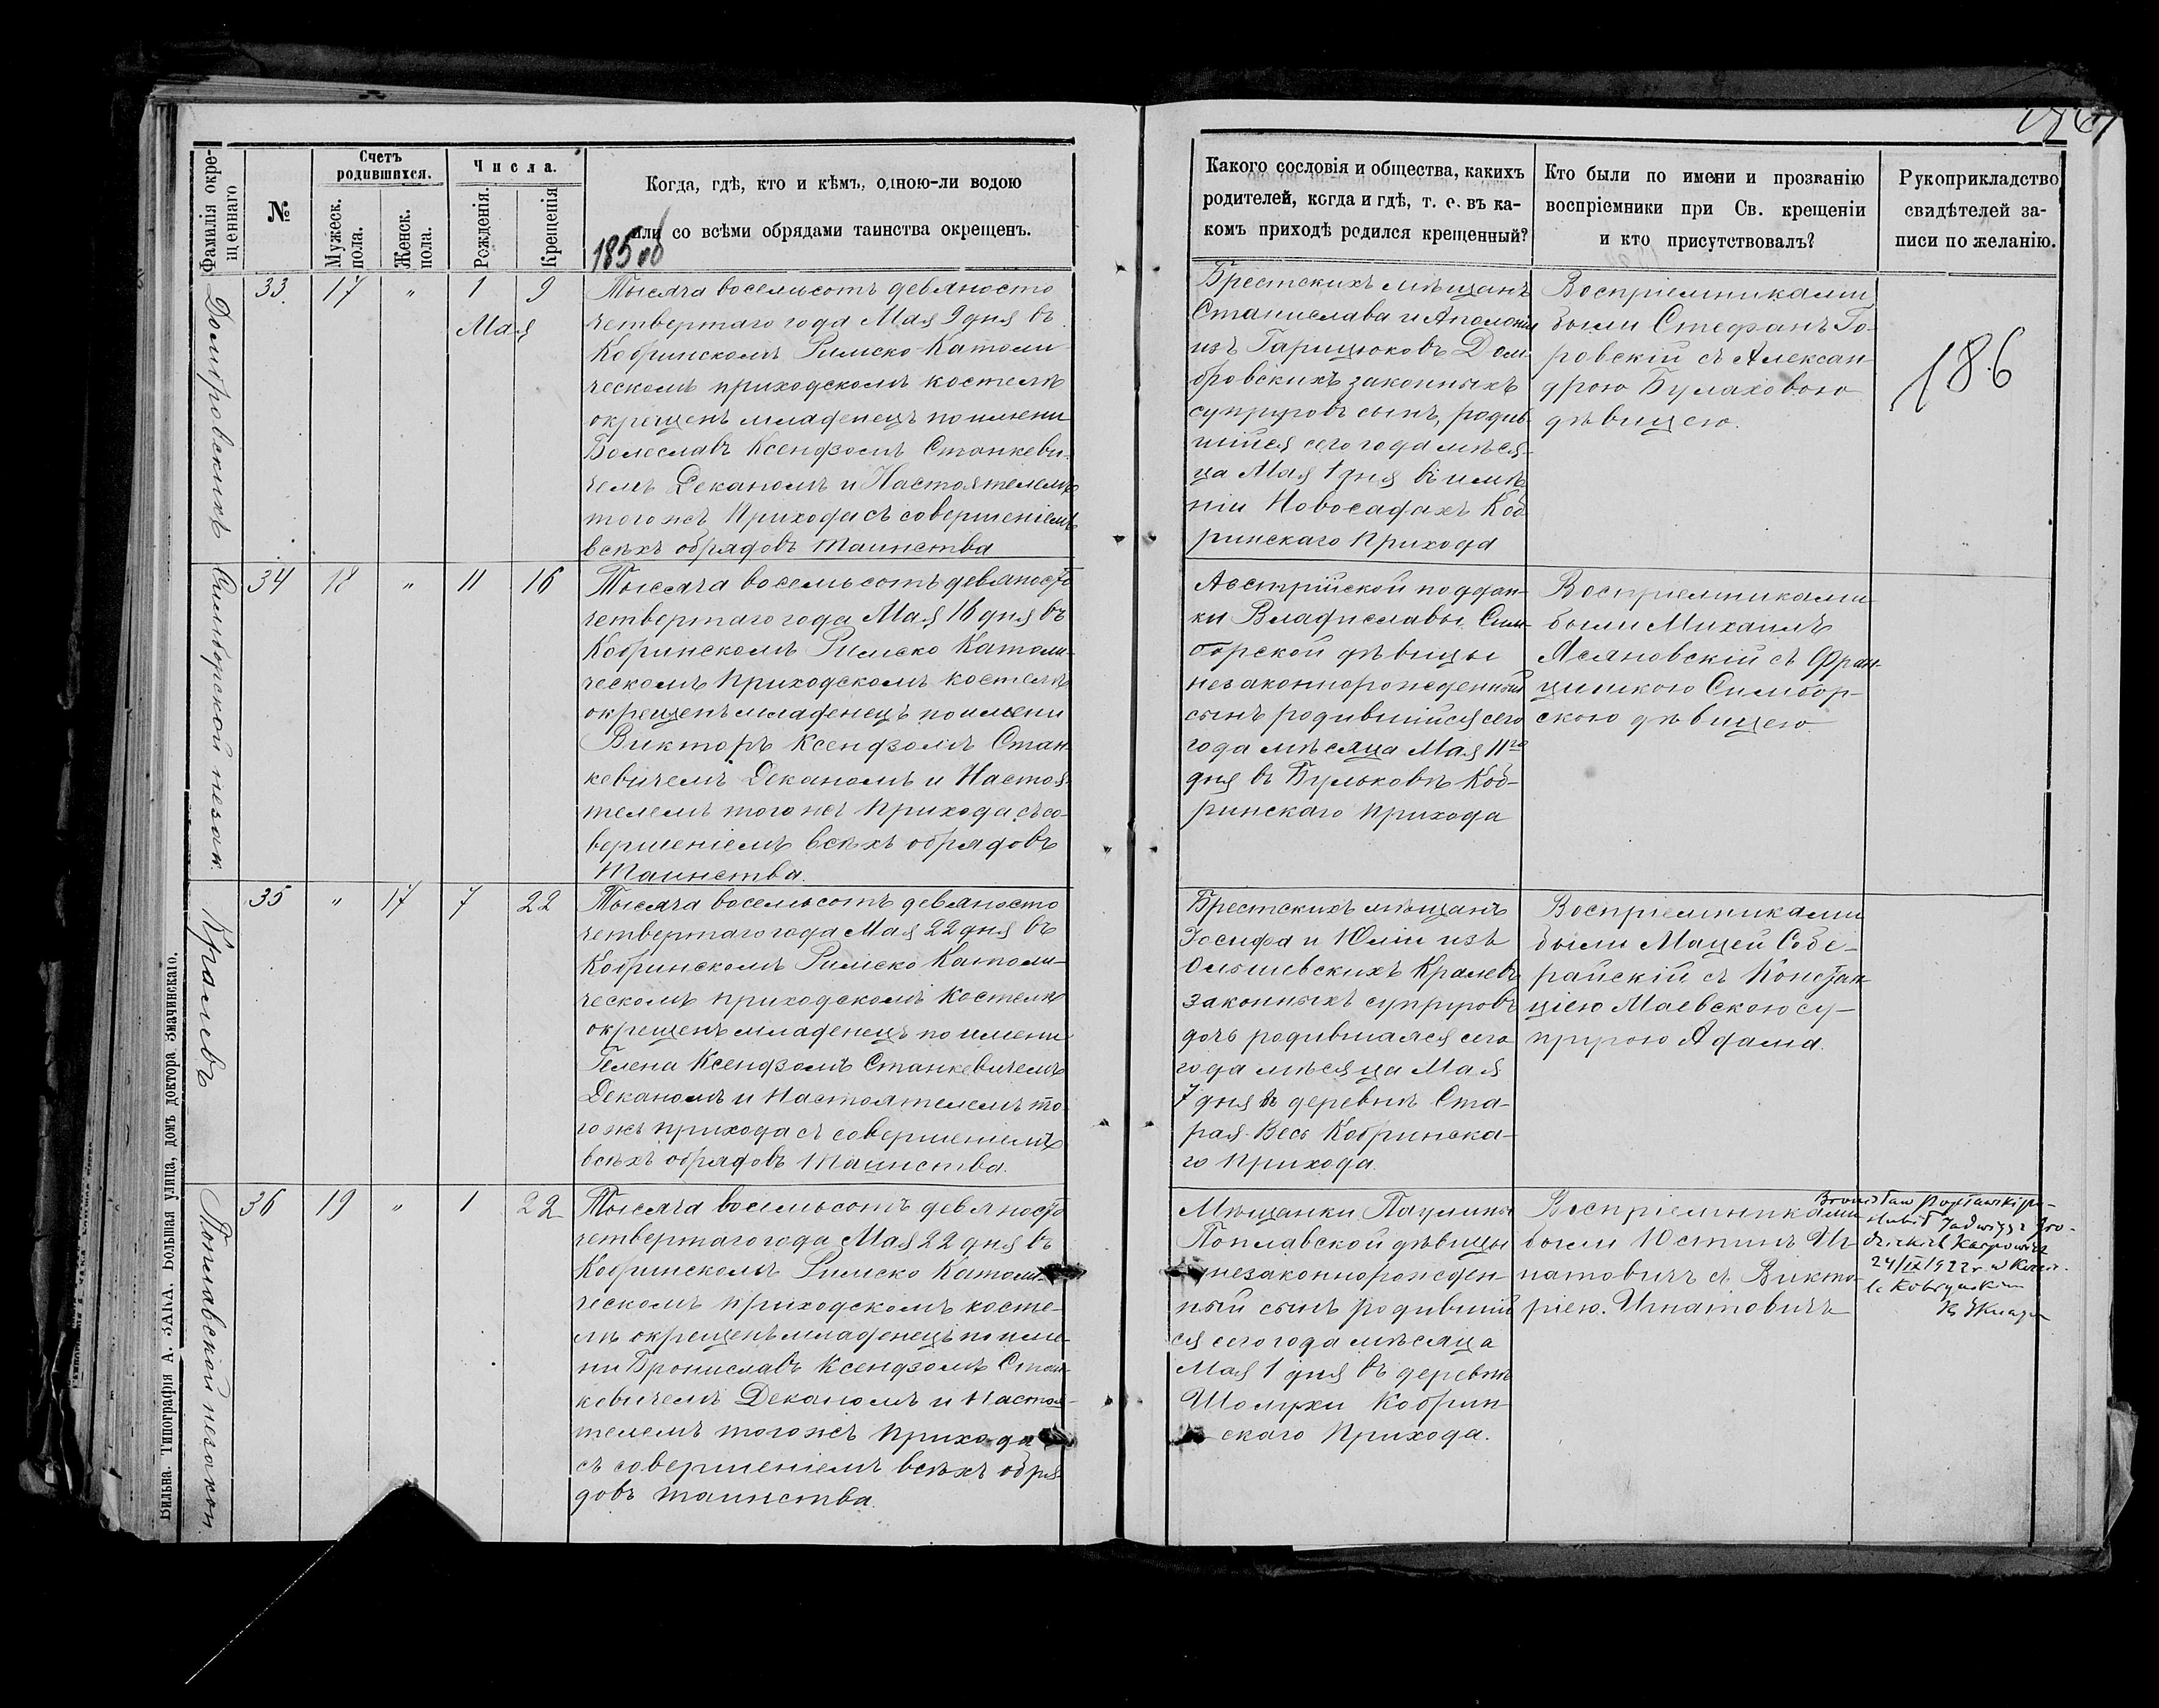 Фамилія окре-
щеннаго
№
Счетъ
родившихся.
Мужеск.
пола.
Женск.
пола.
Числа.
Рожденія.
Крещенія
Когда, гдѣ, кто и кѣмъ, одною-ли водою
или со всѣми обрядами таинства окрещенъ.
Какого сословія и общества, какихъ
родителей, когда и гдѣ, т. е. въ ка-
комъ приходѣ родился крещенный?
Кто были по имени и прозванію
воспріемники при Св. крещеніи
и кто присутствовалъ?
Рукоприкладство
свидѣтелей за-
писи по желанію.
Домбровскихъ
33.
17
"
1
9
Мая
Тысяча восемьсотъ девяносто
четвертаго года Мая 9 дня въ
Кобринскомъ Римско-Католи
ческомъ приходскомъ костелѣ
окрещенъ младенецъ по имени
Болеславъ Ксендзомъ Станкеви-
чемъ Деканомъ и Настоятелемъ
того жъ Прихода съ совершеніемъ
всѣхъ обрядовъ Таинства
Брестскихъ мѣщанъ
Станислава и Аполоніи
изъ Гарицюковъ Дом-
бровскихъ законныхъ
супруговъ сынъ, родив-
шійся сего года мѣся-
ца Мая 1 дня въ имѣ
ніи Новосадахъ Коб
ринскаго Прихода
Воспріемниками
были Стефанъ Го-
ровскій съ Алексан-
дрою Булаховою
дѣвицею.
186
Симборской незак.
34
18
"
11
16
Тысяча восемьсотъ девяносто
четвертаго года Мая 16 дня въ
Кобринскомъ Римско Католи-
ческомъ Приходскомъ костелѣ
окрещенъ младенецъ по имени
Викторъ Ксендзомъ Стан
кевичемъ Деканомъ и Настоя-
телемъ того жъ Прихода съ со-
вершеніемъ всѣхъ обрядовъ
Таинства.
Австрійской поддан-
ки Владиславы Сим-
борской дѣвицы
незаконнорожденный
сынъ родившійся сего
года мѣсяца Мая 11го
дня въ Бульковѣ Коб-
ринскаго прихода
Воспріемниками
были Михаилъ
Асяновскій съ Фран-
цишкою Симбор-
скою дѣвицею.
Кралевъ
35
"
17
7
22
Тысяча восемьсотъ девяносто
четвертаго года Мая 22 дня въ
Кобринскомъ Римско Католи-
ческомъ приходскомъ Костелѣ
окрещенъ младенецъ по имени
Гелена Ксендзомъ Станкевичемъ
Деканомъ и Настоятелемъ то
го жъ прихода съ совершеніемъ
всѣхъ обрядовъ Таинства.
Брестскихъ мѣщанъ
Іосифа и Юліи изъ
Ольшевскихъ Кралевъ
законныхъ супруговъ
дочь родившаяся сего
года мѣсяца Мая
7 дня въ деревнѣ Ста-
рая-Весь Кобринска-
го Прихода.
Воспріемниками
были Мацей Собе-
райскій съ Констан-
ціею Маевскою су-
пругою Адама.
Поплавской незакон.
36
19
"
1
22
Тысяча восемьсотъ девяносто
четвертаго года Мая 22 дня въ
Кобринскомъ Римско Католи-
ческомъ приходскомъ косте-
лѣ окрещенъ младенецъ по име-
ни Брониславъ Ксендзомъ Стан-
кевичемъ Деканомъ и Настоя-
телемъ того жъ прихода
съ совершеніемъ всѣхъ обря-
довъ таинства.
Мѣщанки Паулины
Поплавской дѣвицы
незаконнорожден-
ный сынъ родившій
ся сего года мѣсяца
Мая 1 дня въ деревнѣ
Шолухи Кобрин-
скаго Прихода.
Воспріемниками
были Юстинъ Иг-
натовичъ съ Викто-
ріею Игнатовичъ
Bronisław Popławski po-
ślubił Jadwigę
Karpowicz
24/IX 1922 r. w
Kobryńskim
Вильна. Типографія А. ЗАКА. Большая улица, домъ доктора Змачинскаго.